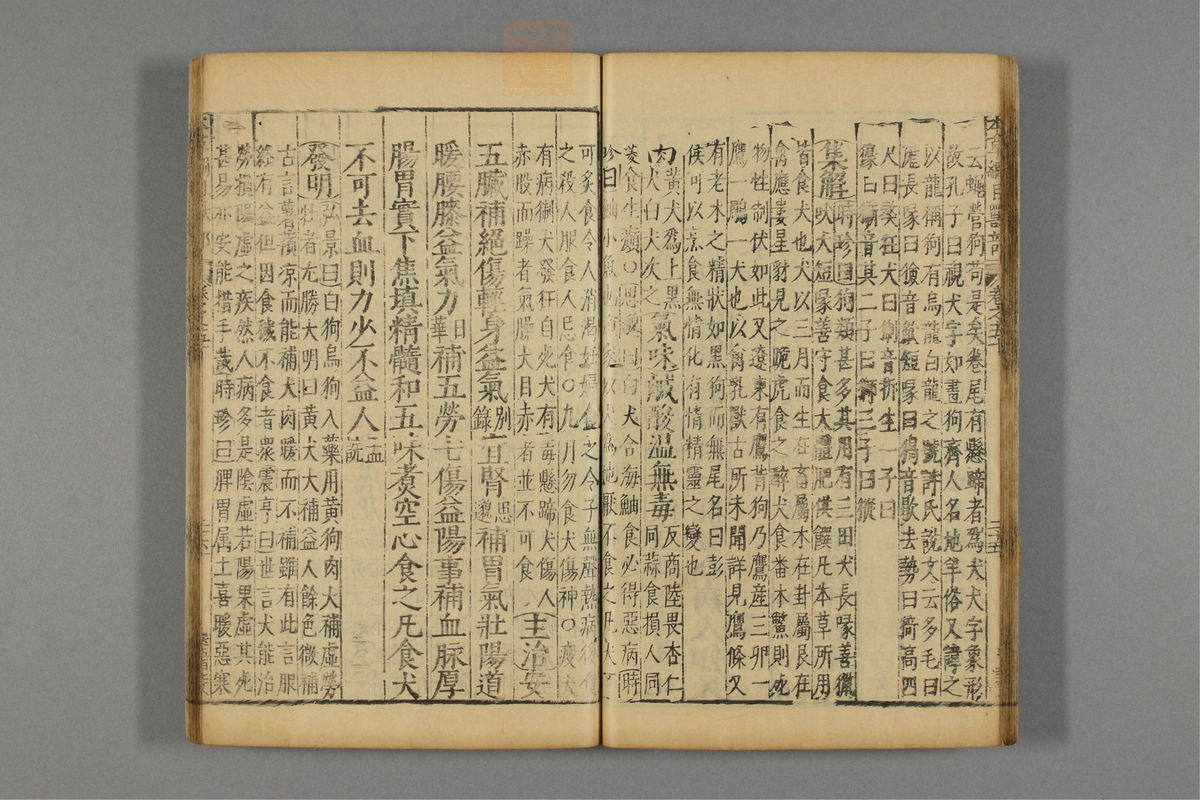 云蠅營狗苟是矣卷尾有懸蹄者爲犬犬字象形
故孔子曰視犬字如畫狗齊人名地羊俗又諱之
以龍稱狗有烏龍白龍之號許氏說文云多毛曰
尨長喙曰獫音歛短喙曰猲音歇去勢曰猗高四
尺曰獒狂犬曰猘音折生一子曰
獴曰𤡆音其二子曰獅三子曰獵
集解時珍曰狗類甚多其用有三田犬長喙善獵
吠犬短喙善守食犬體肥供饌凡本草所用
皆食犬也犬以三月而生在畜屬木在卦屬艮在
禽應婁星豺見之跪虎食之醉犬食番木鱉則死
物性制伏如此又遼東有鷹背狗乃鷹産三卵一
鷹一鵰一犬也以禽乳獸古所未聞詳見鷹條又
有老木之精狀如黑狗而無尾名曰彭
侯可以烹食無情化有情精靈之變也
肉黄犬爲上黒犬白犬次之氣味鹹酸温無毒反商陸畏杏仁同蒜食損人同
菱食生癩○思邈曰白犬合海鮋食必得惡病時
珍曰鮋小魚也道家以犬爲地厭不食之凡犬不
可炙食令人消渴妊婦食之令子無聲熱病後食
之殺人服食人忌食○九月勿食犬傷神○瘦犬
有病猘犬發狂自死犬有毒懸蹄犬傷人
赤股而躁者氣臊犬目赤者並不可食主治安
五臟補絶傷輕身益氣别錄宜腎思邈補胃氣壯陽道
暖腰膝益氣力日華補五勞七傷益陽事補血脉厚
腸胃實下焦填精髓和五味煑空心食之凡食犬
不可去血則力少不益人孟詵
發明弘景曰白狗烏狗入藥用黄狗肉大補虚勞
牡者尤勝大明曰黄犬大補益人餘色微補
古言薯蕷凉而能補犬肉暖而不補雖有此言服
終有益但因食穢不食者衆震亨曰世言犬能治
勞損陽虚之疾然人病多是陰虚若陽果虚其死
甚易亦安能措手哉時珍曰脾胃属土喜暖惡寒